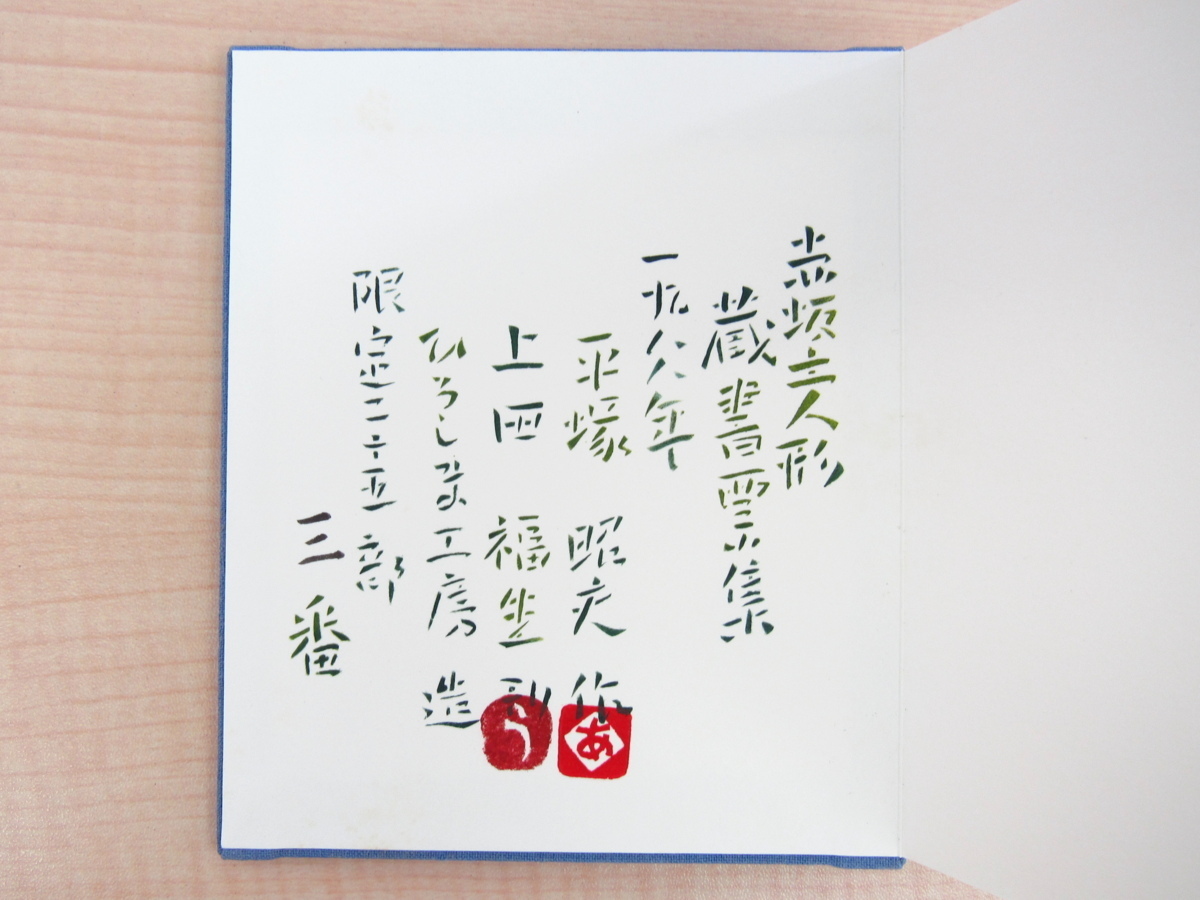 赤坂土人形
蔵書票集
一九八八年
平塚 昭夫 作
上田 福生 刻
ひろしな工房 造
限定二十五部
三番
う
あ